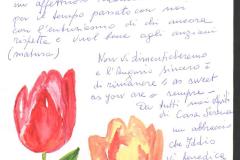 un affettuoso
per il tempo passato con noi
con l'entusiasmo di chi ancora
rispetta e vuol bene agli anziani
(matusa)
Non vi dimenticheremo
e l'augurio sincero è
di rimanere "as sweet
as you are" sempre -
Da tutti noi
di Casa Serena
un abbraccio
che Iddio
vi benedica